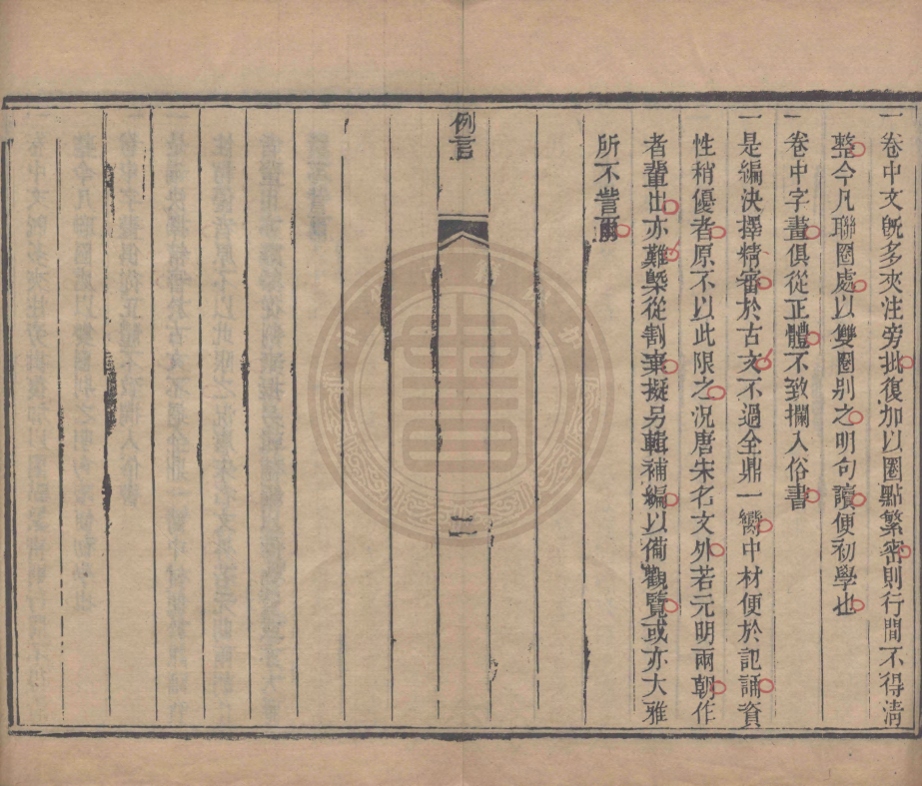 一卷中文旣多夾注旁批復加以圈點繁密則行間不得清
整今凡聯圈處以雙圈別之明句讀便初學也
一卷中字畫俱從正體不致攔入俗書
一是編決擇精審於古文不過全鼎一臠中材便於記誦資
性稍優者原不以此限之況唐宋名文外若元明兩朝作
者輩出亦難槩從割棄擬另輯補編以備觀覽或亦大雅
所不訾爾
例言
二